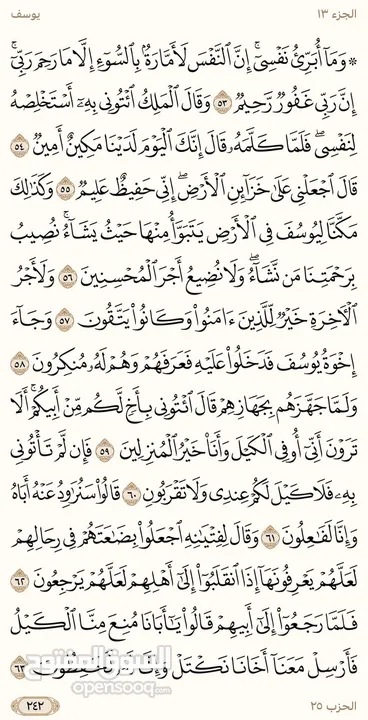 الجزء ١٣ يوسف
۞ وَمَآ أُبَرِّئُ نَفۡسِيٓۚ إِنَّ ٱلنَّفۡسَ لَأَمَّارَةُۢ بِٱلسُّوٓءِ إِلَّا مَا رَحِمَ رَبِّيٓۚ
إِنَّ رَبِّي غَفُورٞ رَّحِيمٞ ٥٣ وَقَالَ ٱلۡمَلِكُ ٱئۡتُونِي بِهِۦٓ أَسۡتَخۡلِصۡهُ
لِنَفۡسِيۖ فَلَمَّا كَلَّمَهُۥ قَالَ إِنَّكَ ٱلۡيَوۡمَ لَدَيۡنَا مَكِينٌ أَمِينٞ ٥٤
قَالَ ٱجۡعَلۡنِي عَلَىٰ خَزَآئِنِ ٱلۡأَرۡضِۖ إِنِّي حَفِيظٌ عَلِيمٞ ٥٥ وَكَذَٰلِكَ
مَكَّنَّا لِيُوسُفَ فِي ٱلۡأَرۡضِ يَتَبَوَّأُ مِنۡهَا حَيۡثُ يَشَآءُۚ نُصِيبُ
بِرَحۡمَتِنَا مَن نَّشَآءُۖ وَلَا نُضِيعُ أَجۡرَ ٱلۡمُحۡسِنِينَ ٥٦ وَلَأَجۡرُ
ٱلۡأٓخِرَةِ خَيۡرٞ لِّلَّذِينَ ءَامَنُواْ وَكَانُواْ يَتَّقُونَ ٥٧ وَجَآءَ
إِخۡوَةُ يُوسُفَ فَدَخَلُواْ عَلَيۡهِ فَعَرَفَهُمۡ وَهُمۡ لَهُۥ مُنكِرُونَ ٥٨
وَلَمَّا جَهَّزَهُم بِجَهَازِهِمۡ قَالَ ٱئۡتُونِي بِأَخٖ لَّكُم مِّنۡ أَبِيكُمۡۚ أَلَا
تَرَوۡنَ أَنِّيٓ أُوفِي ٱلۡكَيۡلَ وَأَنَا۠ خَيۡرُ ٱلۡمُنزِلِينَ ٥٩ فَإِن لَّمۡ تَأۡتُونِي
بِهِۦ فَلَا كَيۡلَ لَكُمۡ عِندِي وَلَا تَقۡرَبُونِ ٦٠ قَالُواْ سَنُرَٰوِدُ عَنۡهُ أَبَاهُ
وَإِنَّا لَفَٰعِلُونَ ٦١ وَقَالَ لِفِتۡيَٰنِهِ ٱجۡعَلُواْ بِضَٰعَتَهُمۡ فِي رِحَالِهِمۡ
لَعَلَّهُمۡ يَعۡرِفُونَهَآ إِذَا ٱنقَلَبُوٓاْ إِلَىٰٓ أَهۡلِهِمۡ لَعَلَّهُمۡ يَرۡجِعُونَ ٦٢
فَلَمَّا رَجَعُوٓاْ إِلَىٰٓ أَبِيهِمۡ قَالُواْ يَٰٓأَبَانَا مُنِعَ مِنَّا ٱلۡكَيۡلُ
فَأَرۡسِلۡ مَعَنَآ أَخَانَا نَكۡتَلۡ وَإِنَّا لَهُۥ لَحَٰفِظُونَ ٦٣
السوق المفتوح
opensooq.com
الحزب ٢٥ ٢٤٢